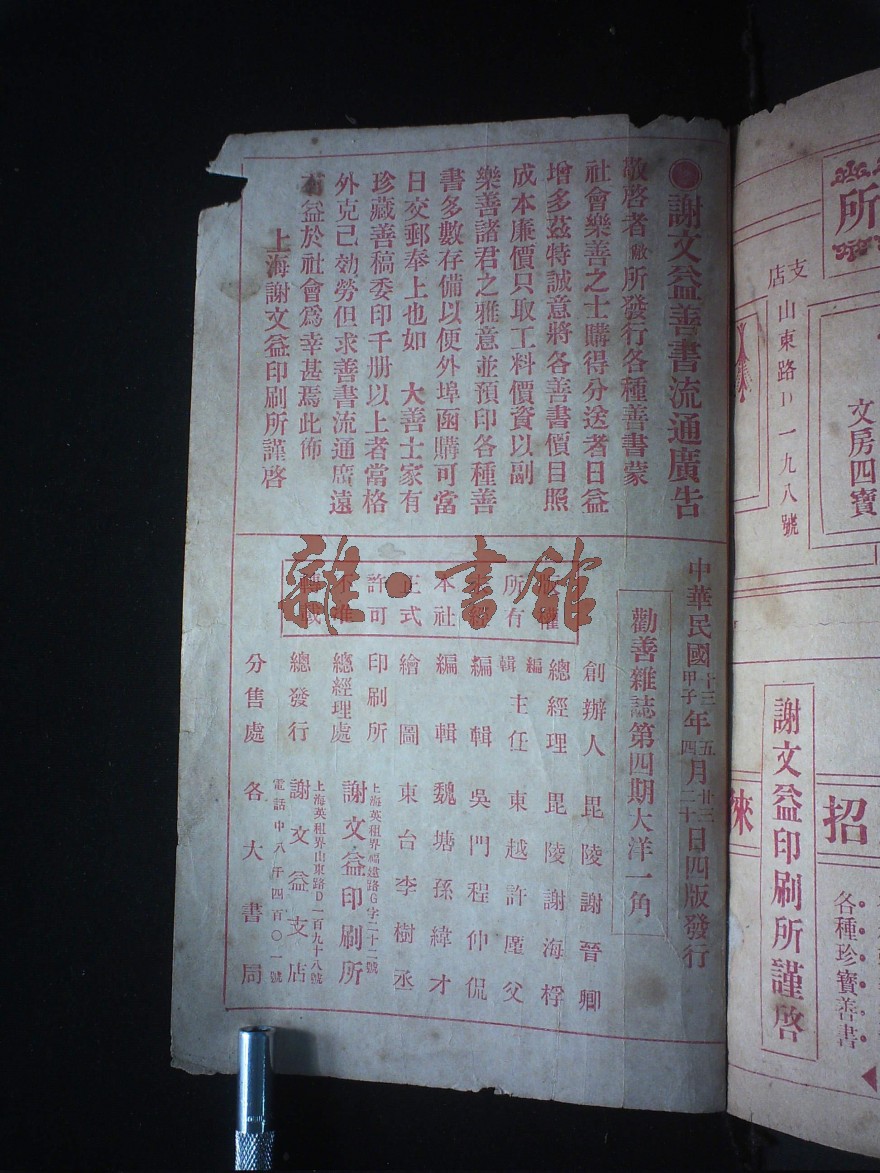 所
支店
山東路D一九八號
文房四寶
招
徠
謝文益印刷所謹啓
各種珍寶善書
謝文益善書流通廣告
敬啓者敝所發行各種善書蒙
社會樂善之士購得分送者日益
增多茲特誠意將各善書價目照
成本廉價只取工料價資以副
樂善諸君之雅意並預印各種善
書多數存備以便外埠函購可當
日交郵奉上也如 大善士家有
珍藏善稿委印千册以上者當格
外克己効勞但求善書流通廣遠
有益於社會爲幸甚焉此佈
上海謝文益印刷所謹啓
中華民國十三年五月廿三日四版發行
甲子四二十
勸善雜誌第四期大洋一角
所有
本社
正式
許可
創辦人 毘陵謝晉卿
總經理 毘陵謝海桴
編輯主任 東越許厪父
編輯 吳門程仲侃
編輯 魏塘孫緯才
繪圖 東台李樹丞
印刷所 上海英租界福建路G字二十二號
總經理處 謝文益印刷所
總發行 上海英租界山東路D一百九十八號
謝文益支店
電話中八千四百〇一號
分售處 各大書局
雜·書館